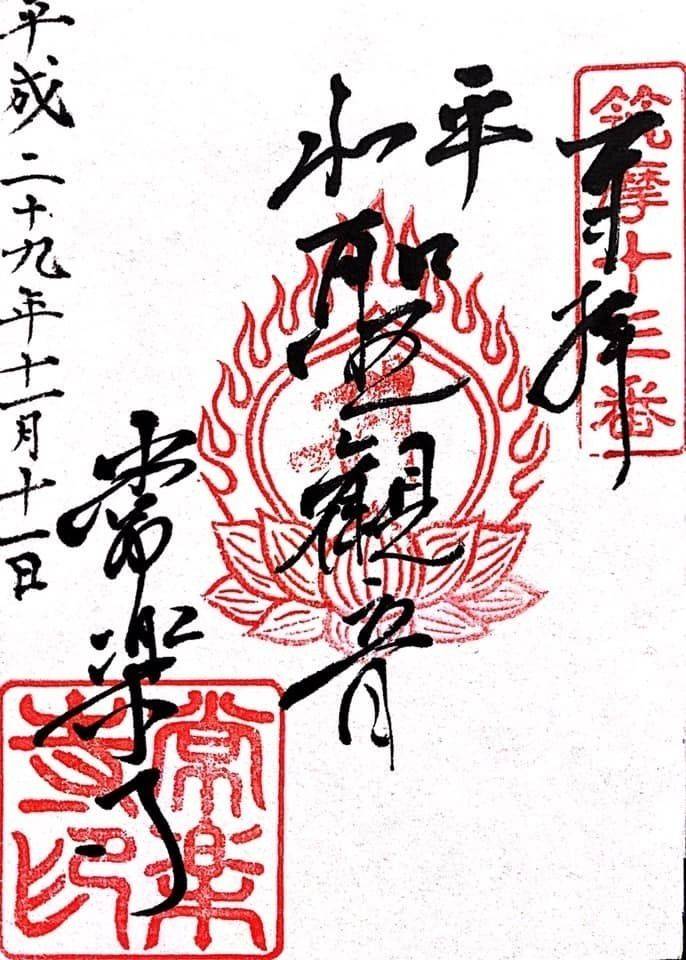 奉拝
筑摩
三番
平
聖觀音
常楽寺
常楽
寺印
平成二十九年十一月十一日